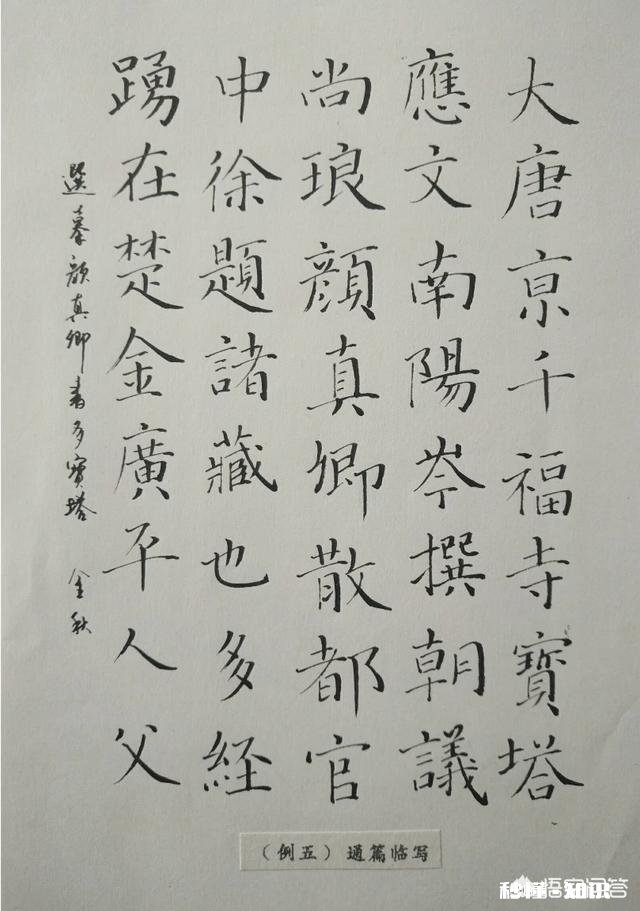 大唐京千福寺寶塔
應文南陽岑撰朝議
尚琅顏真卿散都官
中徐題諸藏也多經
踴在楚金廣平人父
選摹顔真卿書多寶塔 金秋
（例五）通篇临写
秒懂 知识
悟空问答